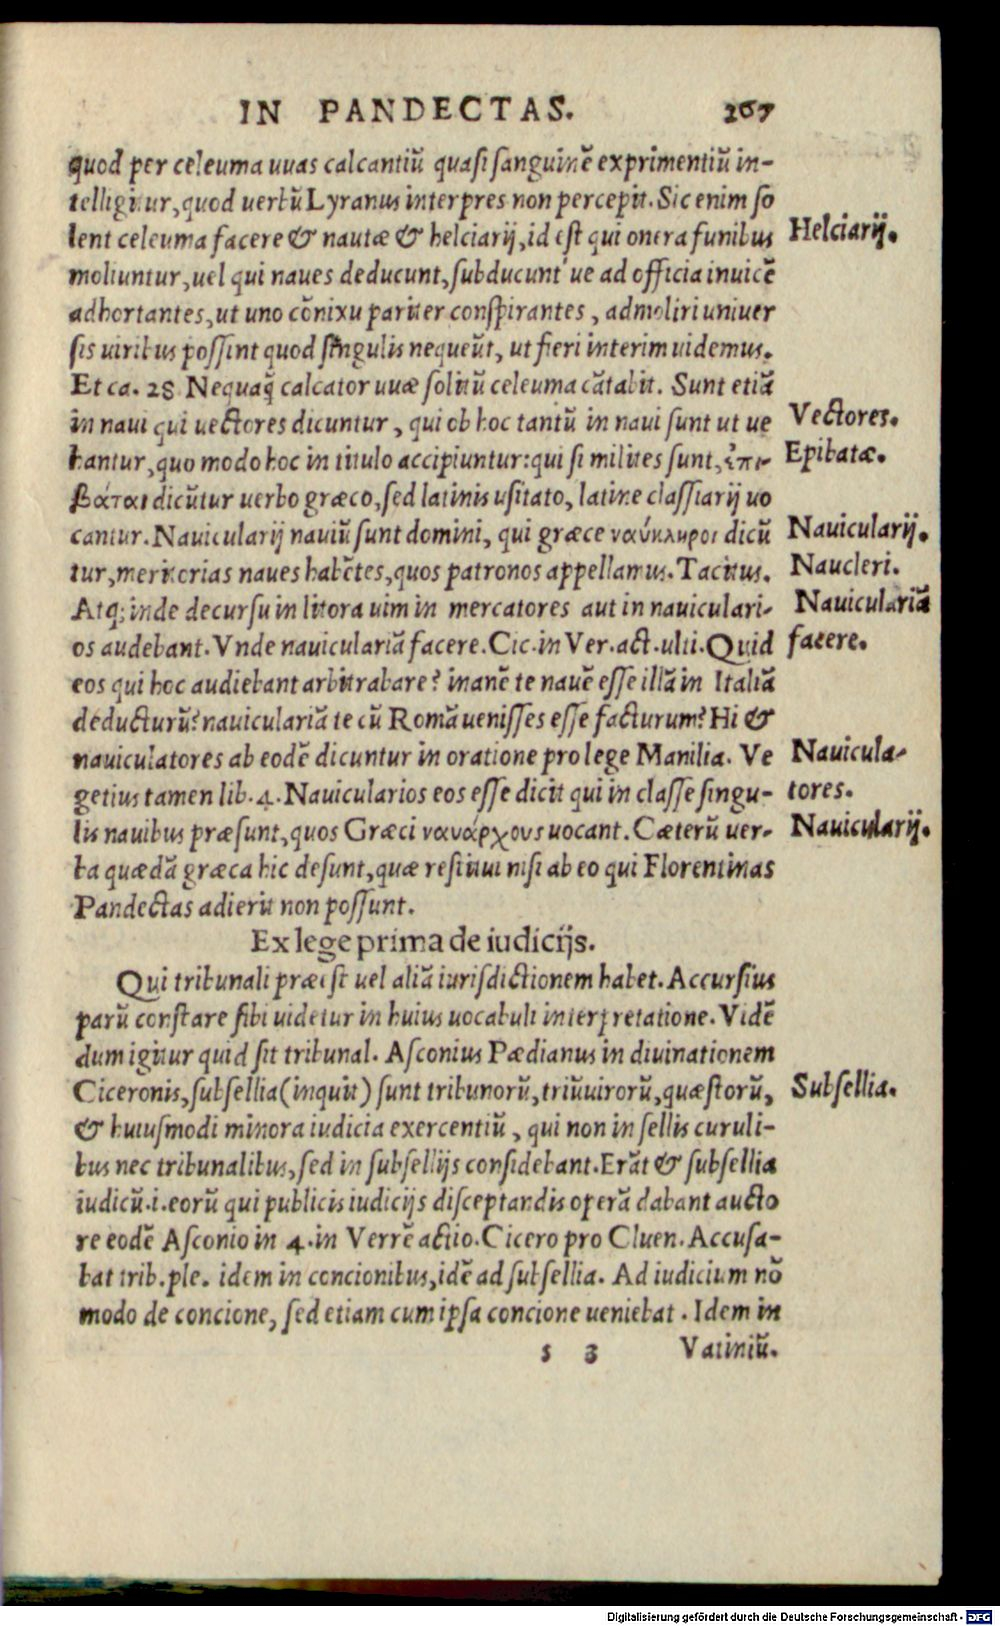 IN PANDECTAS. 267
quod per celeuma uuas calcantiũ quasi sanguinẽ exprimentiũ in-
telligitur, quod uerbũ Lyranus interpres non percepit. Sic enim so
lent celeuma facere & nautæ & helciarij, id est qui onera funibus
Helciarij.
moliuntur, uel qui naues deducunt, subducunt ue ad officia inuicẽ
adhortantes, ut uno cõnixu pariter conspirantes, admoliri uniuer
sis uiribus possint quod singulis nequeũt, ut fieri interim uidemus.
Et ca. 28. Nequaq̃ calcator uuæ solitũ celeuma cãtabit. Sunt etiã
in naui qui uectores dicuntur, qui ob hoc tantũ in naui sunt ut ue
Vectores.
hantur, quo modo hoc in titulo accipiuntur: qui si milites sunt, ἐπι-
Epibatæ.
βάται dicũtur uerbo græco, sed latinis usitato, latine classiarij uo
cantur. Nauicularij nauiũ sunt domini, qui græce ναύκληροι dicũ
Nauicularij.
tur, meritorias naues habẽtes, quos patronos appellamus. Tacitus.
Naucleri.
Atq; inde decursu in litora uim in mercatores aut in nauiculari-
Nauiculariã
os audebant. Vnde nauiculariã facere. Cic. in Ver. act. ulti. Quid
facere.
eos qui hoc audiebant arbitrabare? inanẽ te nauẽ esse illã in Italiã
deducturũ? nauiculariã te cũ Romã uenisses esse facturum? Hi &
nauiculatores ab eodẽ dicuntur in oratione pro lege Manilia. Ve
Nauicula-
getius tamen lib. 4. Nauicularios eos esse dicit qui in classe singu-
tores.
lis nauibus præsunt, quos Græci ναυάρχους uocant. Cæterũ uer-
Nauicularij.
ba quædã græca hic desunt, quæ restitui nisi ab eo qui Florentinas
Pandectas adierit non possunt.
Ex lege prima de iudicijs.
Qui tribunali præest uel aliã iurisdictionem habet. Accursius
parũ constare sibi uidetur in huius uocabuli interpretatione. Vidẽ
dum igitur quid sit tribunal. Asconius Pædianus in diuinationem
Ciceronis, subsellia (inquit) sunt tribunorũ, triũuirorũ, quæstorũ,
Subsellia.
& huiusmodi minora iudicia exercentiũ, qui non in sellis curuli-
bus nec tribunalibus, sed in subsellijs considebant. Erãt & subsellia
iudicũ .i. eorũ qui publicis iudicijs disceptandis operã dabant aucto
re eodẽ Asconio in 4. in Verrẽ actio. Cicero pro Cluen. Accusa-
bat trib. ple. idem in concionibus, idẽ ad subsellia. Ad iudicium nõ
modo de concione, sed etiam cum ipsa concione ueniebat. Idem in
s 3 Vatiniũ.
Digitalisierung gefördert durch die Deutsche Forschungsgemeinschaft - DFG